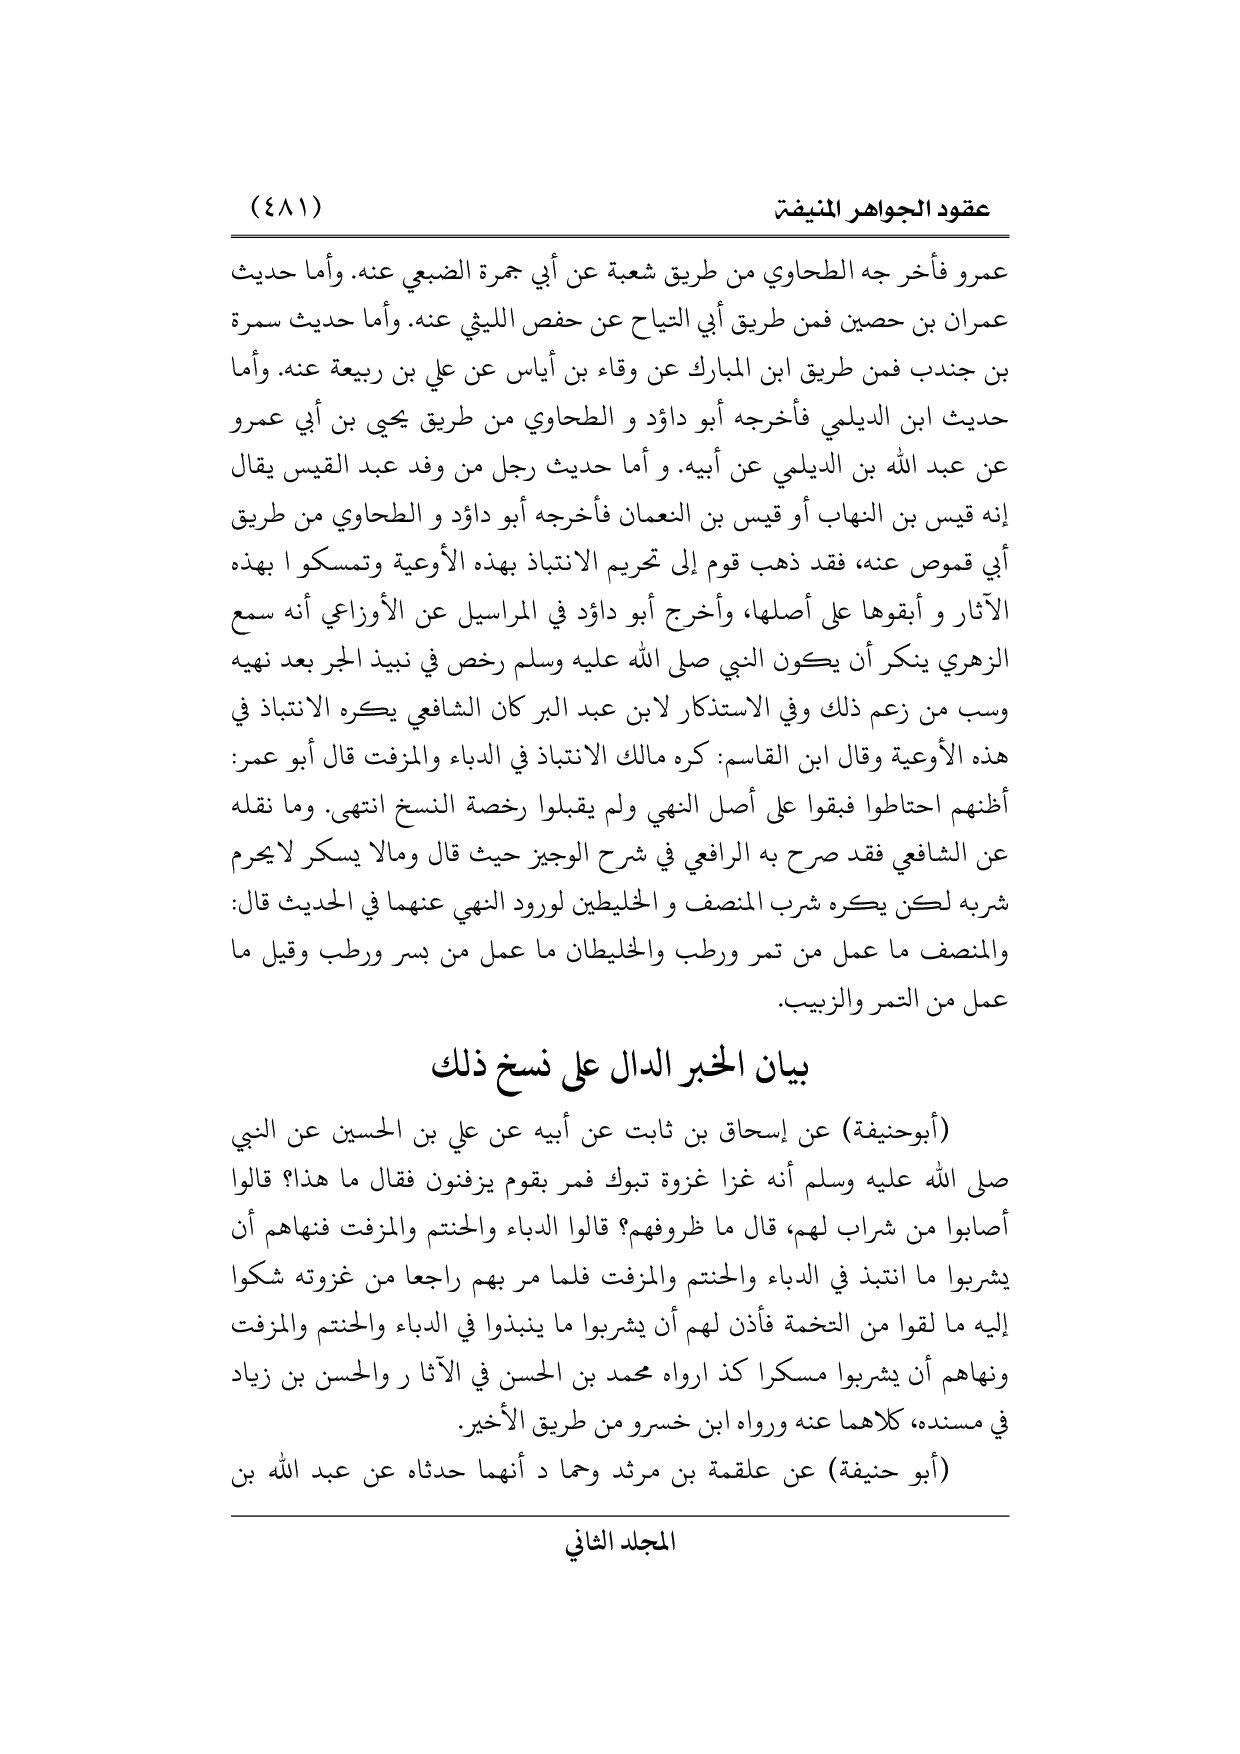 عقود الجواهر المنيفة (٤٨١)
عمرو فأخر جه الطحاوي من طريق شعبة عن أبي جمرة الضبعي عنه. وأما حديث
عمران بن حصين فمن طريق أبي التياح عن حفص الليثي عنه. وأما حديث سمرة
بن جندب فمن طريق ابن المبارك عن وقاء بن أياس عن علي بن ربيعة عنه. وأما
حديث ابن الديلمي فأخرجه أبو داؤد و الطحاوي من طريق يحيى بن أبي عمرو
عن عبد الله بن الديلمي عن أبيه. و أما حديث رجل من وفد عبد القيس يقال
إنه قيس بن النهاب أو قيس بن النعمان فأخرجه أبو داؤد و الطحاوي من طريق
أبي قموص عنه، فقد ذهب قوم إلى تحريم الانتباذ بهذه الأوعية وتمسكو ا بهذه
الآثار و أبقوها على أصلها، وأخرج أبو داؤد في المراسيل عن الأوزاعي أنه سمع
الزهري ينكر أن يكون النبي صلى الله عليه وسلم رخص في نبيذ الجر بعد نهيه
وسب من زعم ذلك وفي الاستذكار لابن عبد البر كان الشافعي يكره الانتباذ في
هذه الأوعية وقال ابن القاسم: كره مالك الانتباذ في الدباء والمزفت قال أبو عمر:
أظنهم احتاطوا فبقوا على أصل النهي ولم يقبلوا رخصة النسخ انتهى. وما نقله
عن الشافعي فقد صرح به الرافعي في شرح الوجيز حيث قال ومالا يسكر لايحرم
شربه لكن يكره شرب المنصف و الخليطين لورود النهي عنهما في الحديث قال:
والمنصف ما عمل من تمر ورطب والخليطان ما عمل من بسر ورطب وقيل ما
عمل من التمر والزبيب.
بيان الخبر الدال على نسخ ذلك
(أبوحنيفة) عن إسحاق بن ثابت عن أبيه عن علي بن الحسين عن النبي
صلى الله عليه وسلم أنه غزا غزوة تبوك فمر بقوم يزفنون فقال ما هذا؟ قالوا
أصابوا من شراب لهم، قال ما ظروفهم؟ قالوا الدباء والحنتم والمزفت فنهاهم أن
يشربوا ما انتبذ في الدباء والحنتم والمزفت فلما مر بهم راجعا من غزوته شكوا
إليه ما لقوا من التخمة فأذن لهم أن يشربوا ما ينبذوا في الدباء والحنتم والمزفت
ونهاهم أن يشربوا مسكرا كذ ارواه محمد بن الحسن في الآثا ر والحسن بن زياد
في مسنده، كلاهما عنه ورواه ابن خسرو من طريق الأخير.
(أبو حنيفة) عن علقمة بن مرثد وحما د أنهما حدثاه عن عبد الله بن
المجلد الثاني